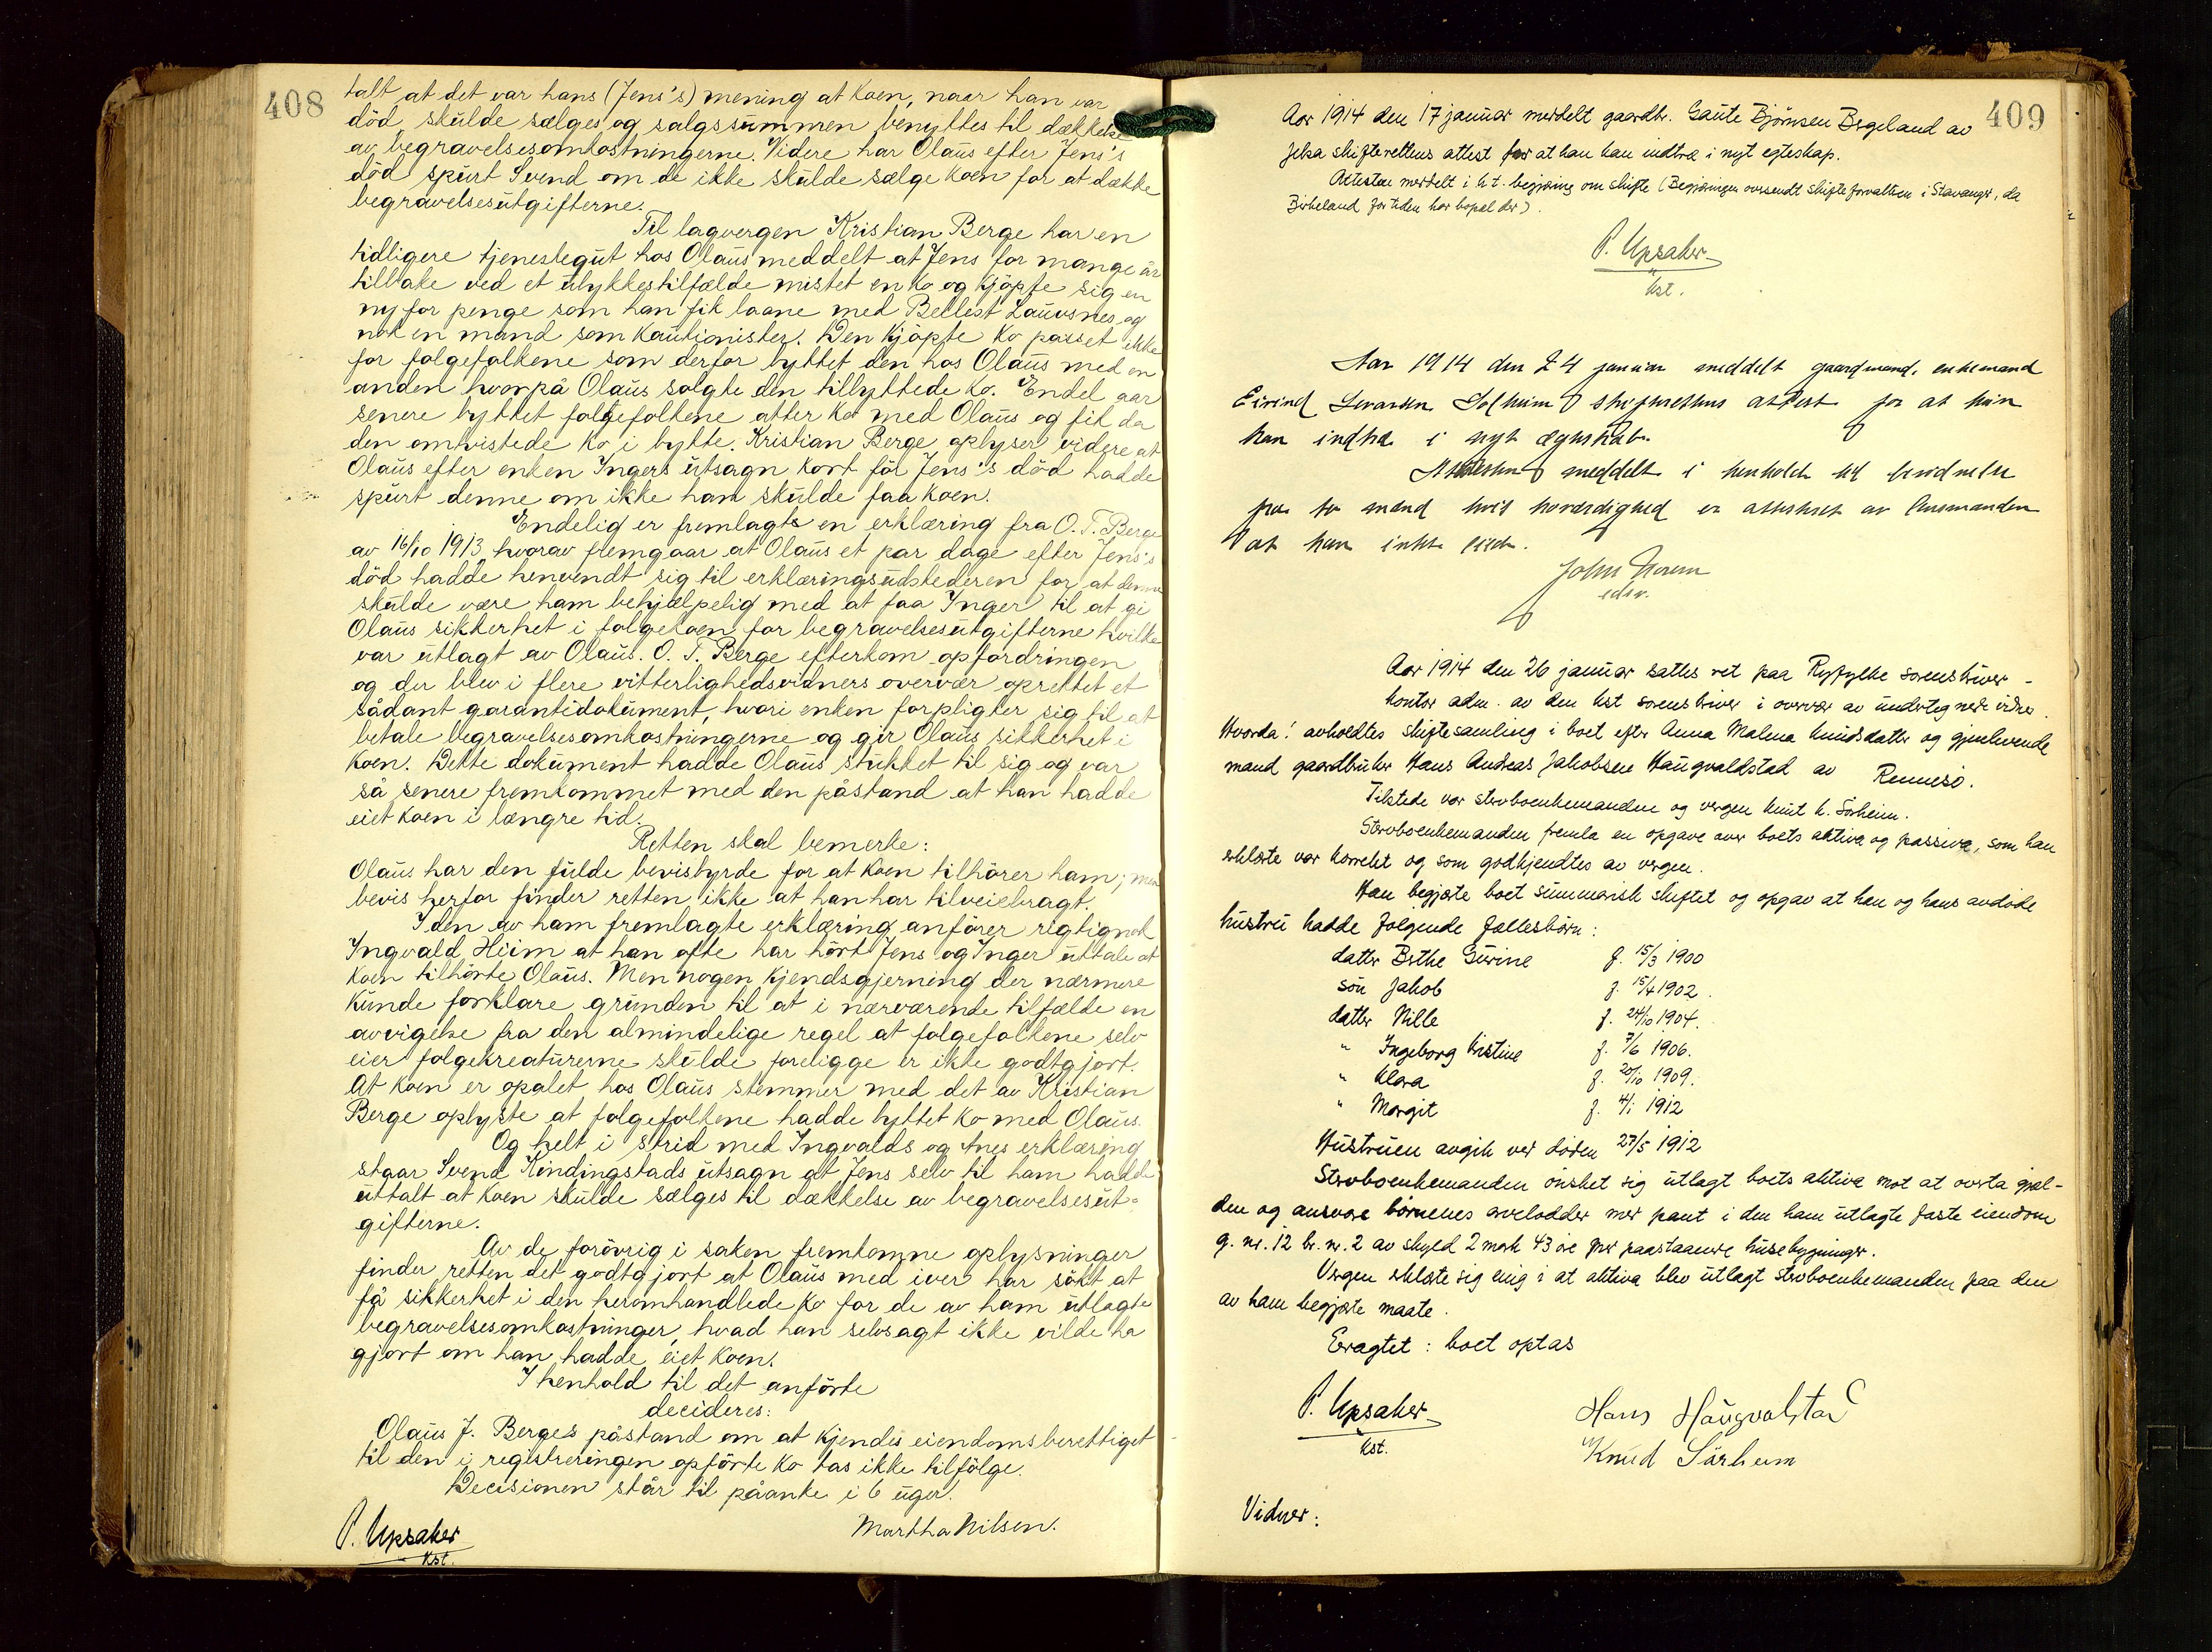 408
talt at det var hans (Jens's) mening at koen, naar han var
död, skulde sælges og salgssummen benyttes til dækkelse
av begravelsesomkostningerne. Videre har Olaus efter Jens's
död spurt Svend om de ikke skulde sælge koen for at dække
begravelsesutgifterne.
Til lagvergen Kristian Berge har en
tidligere tjenestegut hos Olaus meddelt at Jens for mange år
tilbake ved et ulykkestilfælde mistet en ko og kjöpte sig en
ny for penge som han fik laane med Bellest Lauvsnes og
nok en mand som kautionister. Den kjöpte ko passet ikke
for folgefolkene som derfor byttet den hos Olaus med en
anden hvorpå Olaus solgte den tilbyttede ko. Endel aar
senere byttet folgefolkene atter ko med Olaus og fik da
den omtvistede ko i bytte. Kristian Berge oplyser videre at
Olaus efter enken Ingers utsagn kort för Jens's död hadde
spurt denne om ikke han skulde faa koen.
Endelig er fremlagts en erklæring fra O. T. Berge
av 16/10 1913, hvorav fremgaar at Olaus et par dage efter Jens's
död hadde henvendt sig til erklæringsudstederen for at denne
skulde være ham behjælpelig med at faa Inger til at gi
Olaus sikkerhet i folgekoen for begravelsesutgifterne hvilke
var utlagt av Olaus. O. T. Berge efterkom opfordringen
og der blev i flere vitterlighedsvidners overvær oprettet et
sådant garantidokument, hvori enken forpligter sig til at
betale begravelsesomkostningerne og gir Olaus sikkerhet i
koen. Dette dokument hadde Olaus stukket til sig og var
så senere fremkommet med den påstand at han hadde
eiet koen i længre tid.
Retten skal bemerke:
Olaus har den fulde bevisbyrde for at koen tilhörer ham; men
bevis herfor finder retten ikke at han har tilveiebragt.
I den av ham fremlagte erklæring anförer rigtignok
Ingvald Heim at han ofte har hört Jens og Inger uttale at
koen tilhörte Olaus. Men nogen kjendsgjerning der nærmere
kunde forklare grunden til at i nærværende tilfælde en
avvigelse fra den almindelige regel at folgefolkene selv
eier folgekreaturerne skulde foreligge er ikke godtgjort.
At koen er opalet hos Olaus stemmer med det av Kristian
Berge oplyste at folgefolkene hadde byttet ko med Olaus.
Og helt i strid med Ingvalds og Anes erklæring
staar Svend Kindingstads utsagn at Jens selv til ham hadde
uttalt at koen skulde sælges til dækkelse av begravelsesut-
gifterne.
Av de forövrig i saken fremkomne oplysninger
finder retten det godtgjort at Olaus med iver har sökt at
få sikkerhet i den heromhandlede ko for de av ham utlagte
begravelsesomkostninger, hvad han selvsagt ikke vilde ha
gjort om han hadde eiet koen.
I henhold til det anförte
decideres:
Olaus J. Berges påstand om at kjendes eiendomsberettiget
til den i registreringen opförte ko tas ikke tilfölge.
Decisionen står til påanke i 6 uger.
P. Upsaker
kst.
Martha Nilsen.
409
Aar 1914 den 17 januar meddelt gaardbr. Gaute Björnsen Bergeland av
Jelsa skifterettens attest for at han kan indtræ i nyt egteskap.
Attesten meddelt i h t. begjæring om skifte (Begjæringen oversendt skifteforvalteren i Stavanger, da
Birkeland for tiden har bopæl der).
P. Upsaker
kst.
Aar 1914 den 24 januar meddelt gaardmand, enkemand
Eivind Sjursen Solheim skifterettens attest for at han
kan indtræ i nyt ægteskab.
Attesten meddelt i henhold til
fra to mænd hvis troværdighed er attestert av lensmanden
at han intet eied.
John Norem
edsv.
Aar 1914 den 26 januar sattes ret paa Ryfylke sorenskriver-
kontor adm. av den kst sorenskriver i overvær av undertegnede vidner.
Hvorda: avholdtes skiftesamling i boet efter Anna Malena Knudsdatter og gjenlevende
mand gaardbruker Hans Andreas Jakobsen Haugvaldstad av Rennesö.
Tilstede var stervboenkemanden og vergen Knut K. Sörheim.
Stervboenkemanden fremla en opgave over boets aktiva og passiva, som han
erklærte var korrekt og som godkjendtes av vergen.
Han begjærte boet summarisk skiftet og opgav at han og hans avdöde
hustru hadde folgende fællesbörn:
datter Berthe Gurine f. 15/3 1900
sön Jakob f. 15/4 1902.
datter Nille f. 24/10 1904.
" Ingeborg Kristine f. 7/6 1906.
" Klara f. 20/10 1909.
" Margit f. 4/1 1912
Hustruen avgik ved döden 27/5 1912
Stervboenkemanden önsket sig utlagt boets aktiva mot at overta gjæl-
den og ansvare börnenes arvelodder mot pant i den ham utlagte faste eiendom
g. nr. 12 br. nr. 2 av skyld 2 mark 43 öre med paastaaende husebygninger.
Vergen erklærte sig enig i at aktiva blev utlagt stervboenkemanden paa den
av ham begjærte maate.
Eragtet: boet optas
P. Upsaker
kst.
Hans Haugvalstad
Knud Sörheim
Vidner: